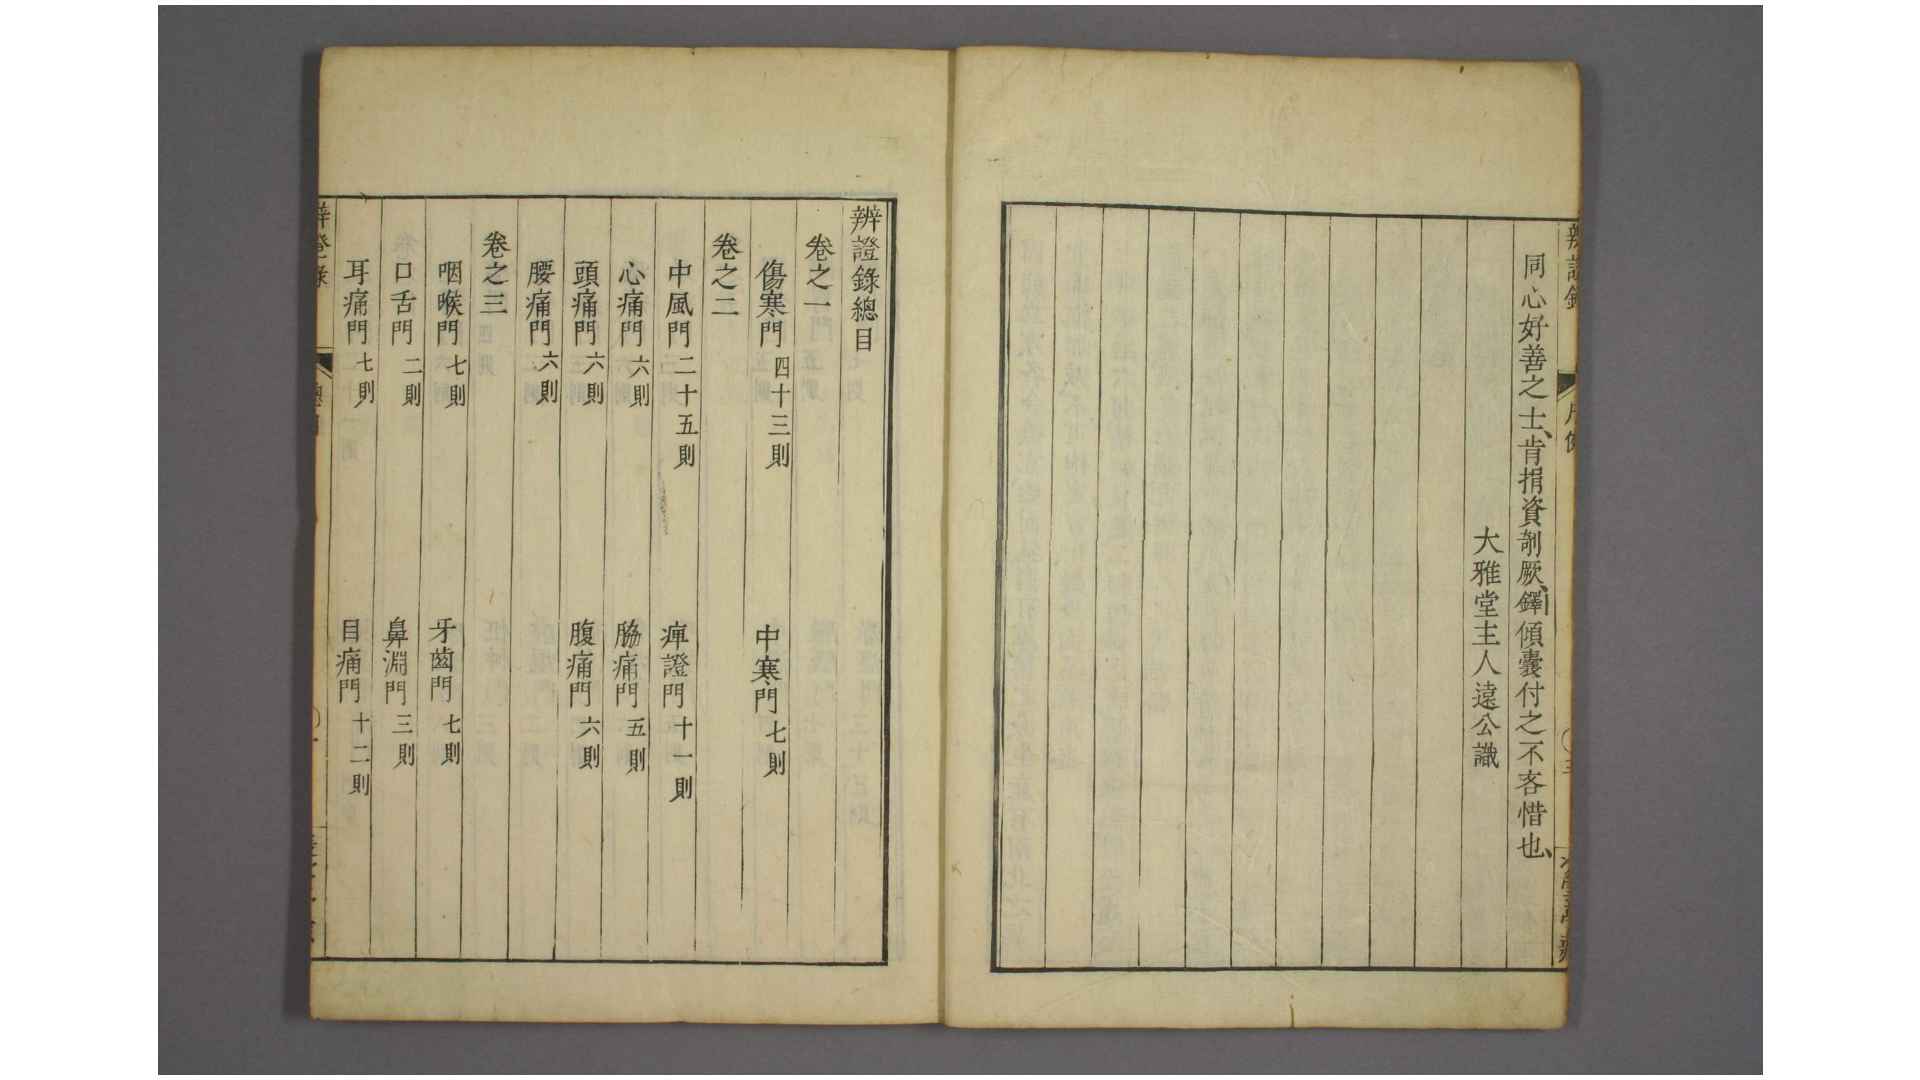 同心好善之士、肯捐資剞厥、鐸傾囊付之不吝惜也、
大雅堂主人遠公識
辨證錄總目
卷之一
傷寒門 四十三則 中寒門 七則
卷之二
中風門 二十五則 痺證門 十一則
心痛門 六則 脇痛門 五則
頭痛門 六則 腹痛門 六則
腰痛門 六則
卷之三
咽喉門 七則 牙齒門 七則
口舌門 二則 鼻淵門 三則
耳痛門 七則 目痛門 十二則
辨證錄